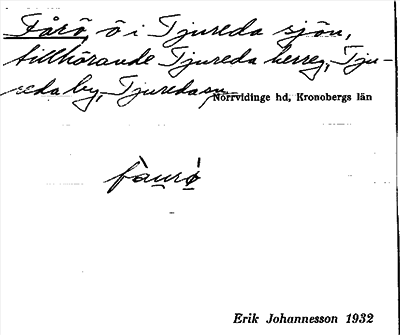 Fårö ö i Tjureda sjön,
tillhörande Tjureda herrg, Tju-
reda by, Tjureda sn,
Norrvidinge hd, Kronobergs län
fàurö̀
Erik Johannesson 1932